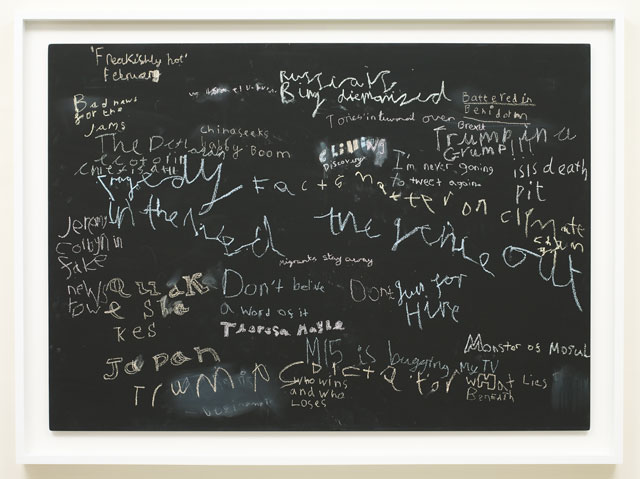 'Freakishly hot'
February
Russia is
Being diemonised
Battered in
Benidorm
Bad news
for the
Jams
Tories in turmoil over Brexit
China seeks
baby Boom
Trump in a
Grump!
The
CLIMING
Discovery
I'm never going
to tweet again
isis death
pit
Tragedy
in the Med
Facts matter on climate
the genie out
Jeremy
Colbyn in
fake
news
row
migrants stay away
Quake
Shakes
Japan
Don't belive
a word of it
Theresa Maybe
Dont
Gun for
Hire
MI5 is bugging My TV
Monster of Mosul
Trump Dictator
Who wins
and who
Loses
What Lies
Beneath